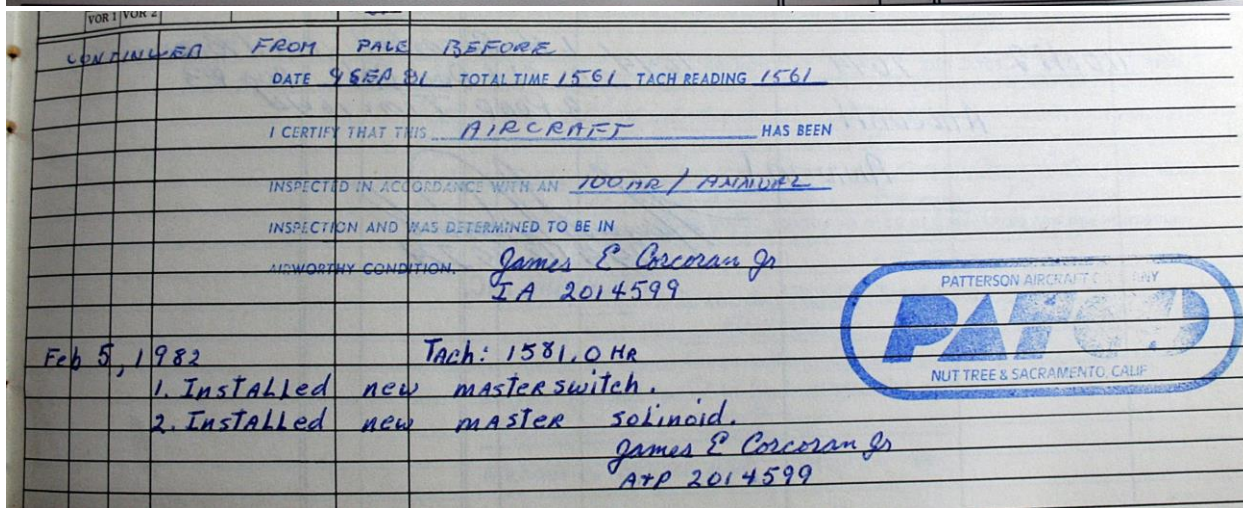 VOR 1 VOR 2
CONTINUED FROM PAGE BEFORE
DATE 9 SEP 81 TOTAL TIME 1561 TACH READING 1561
I CERTIFY THAT THIS AIRCRAFT HAS BEEN
INSPECTED IN ACCORDANCE WITH AN 100 HR / ANNUAL
INSPECTION AND WAS DETERMINED TO BE IN
AIRWORTHY CONDITION. James E Corcoran Jr
IA 2014599
PATTERSON AIRCRAFT
PATCO
NUT TREE & SACRAMENTO, CALIF
Feb 5, 1982 Tach: 1581.0 HR
1. Installed new master switch.
2. Installed new master solinoid.
James E Corcoran Jr
A+P 2014599